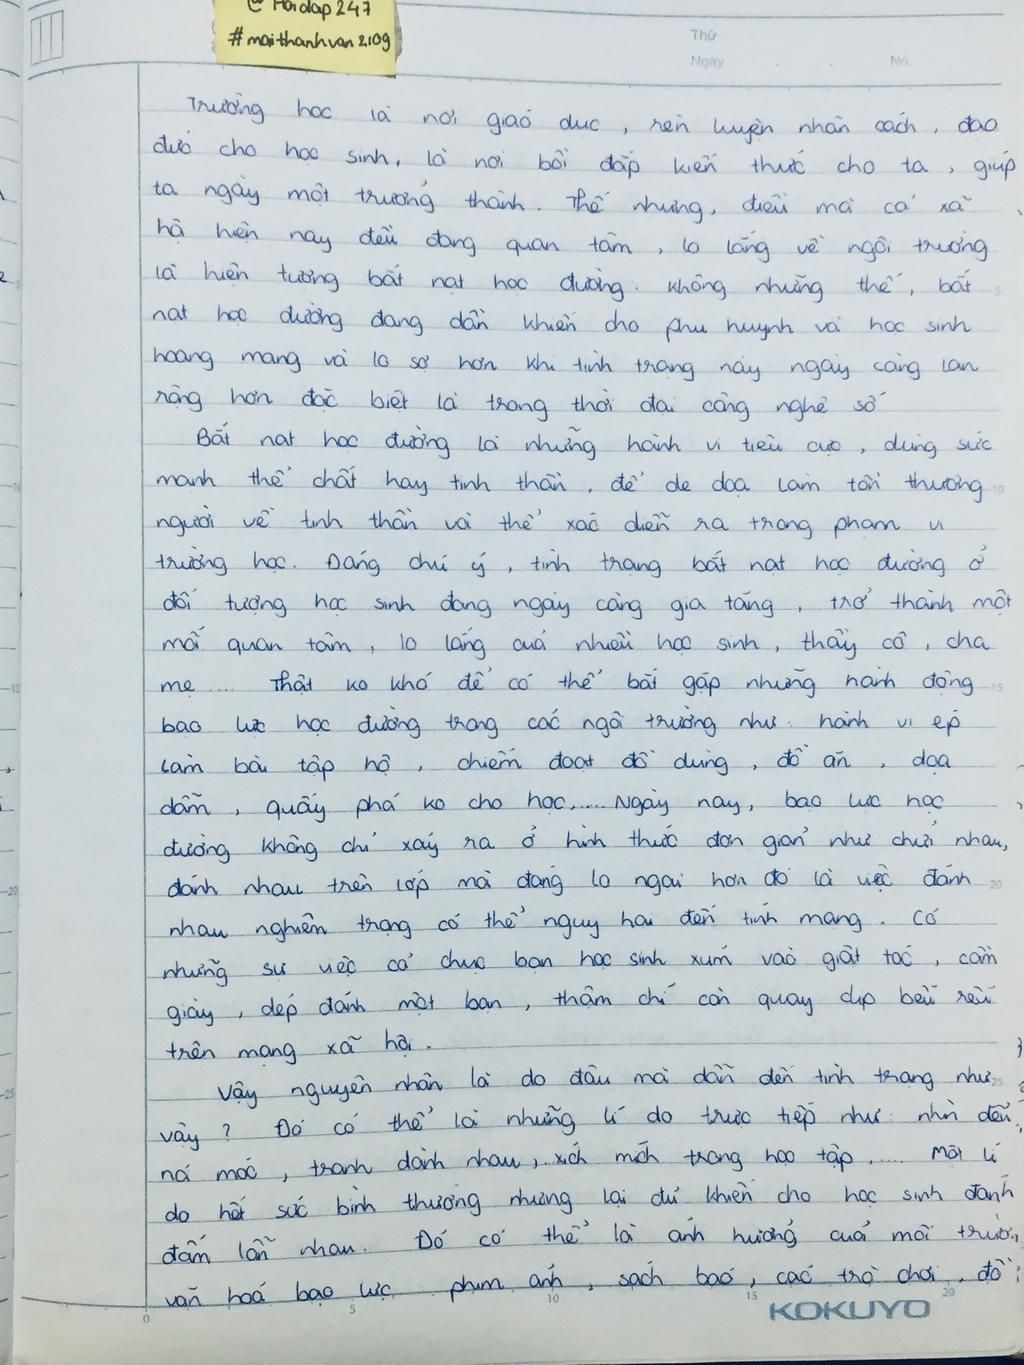 @Hoidap247
#maithanhvan2109
Thứ
Ngày
No.
Trường học là nơi giáo dục, rèn luyện nhân cách, đạo
đức cho học sinh, là nơi bồi đắp kiến thức cho ta, giúp
ta ngày một trưởng thành. Thế nhưng, điều mà cả xã
hội hiện nay đều đang quan tâm, lo lắng về ngôi trường
là hiện tượng bắt nạt học đường. Không những thế, bắt
nạt học đường đang dần khiến cho phụ huynh và học sinh
hoang mang và lo sợ hơn khi tình trạng này ngày càng lan
rộng hơn đặc biệt là trong thời đại công nghệ số
Bắt nạt học đường là những hành vi tiêu cực, dùng sức
mạnh thể chất hay tinh thần, để đe dọa làm tổn thương
người về tinh thần và thể xác diễn ra trong phạm vi
trường học. Đáng chú ý, tình trạng bắt nạt học đường ở
đối tượng học sinh đang ngày càng gia tăng, trở thành một
mối quan tâm, lo lắng của nhiều học sinh, thầy cô, cha
mẹ.... Thật ko khó để có thể bắt gặp những hành động
bạo lực học đường trong các ngôi trường như: hành vi ép
làm bài tập hộ, chiếm đoạt đồ dùng, đồ ăn, dọa
dẫm, quấy phá ko cho học,.... Ngày nay, bạo lực học
đường không chỉ xảy ra ở hình thức đơn giản như chửi nhau,
đánh nhau trên lớp mà đáng lo ngại hơn đó là việc đánh
nhau nghiêm trọng có thể nguy hại đến tính mạng. Có
những sự việc cả chục bạn học sinh xúm vào giật tóc, cầm
giày, dép đánh một bạn, thậm chí còn quay clip bêu rếu
trên mạng xã hội.
Vậy nguyên nhân là do đâu mà dẫn đến tình trạng như
vậy? Đó có thể là những lí do trực tiếp như: nhìn đểu,
nói móc, tranh dành nhau, xích mích trong học tập,.... Một lí
do hết sức bình thường nhưng lại đủ khiến cho học sinh đánh
đấm lẫn nhau. Đó có thể là ảnh hưởng của môi trường
văn hoá bạo lực phim ảnh, sách báo, các trò chơi, đồ
0 5 10 15 20
KOKUYO